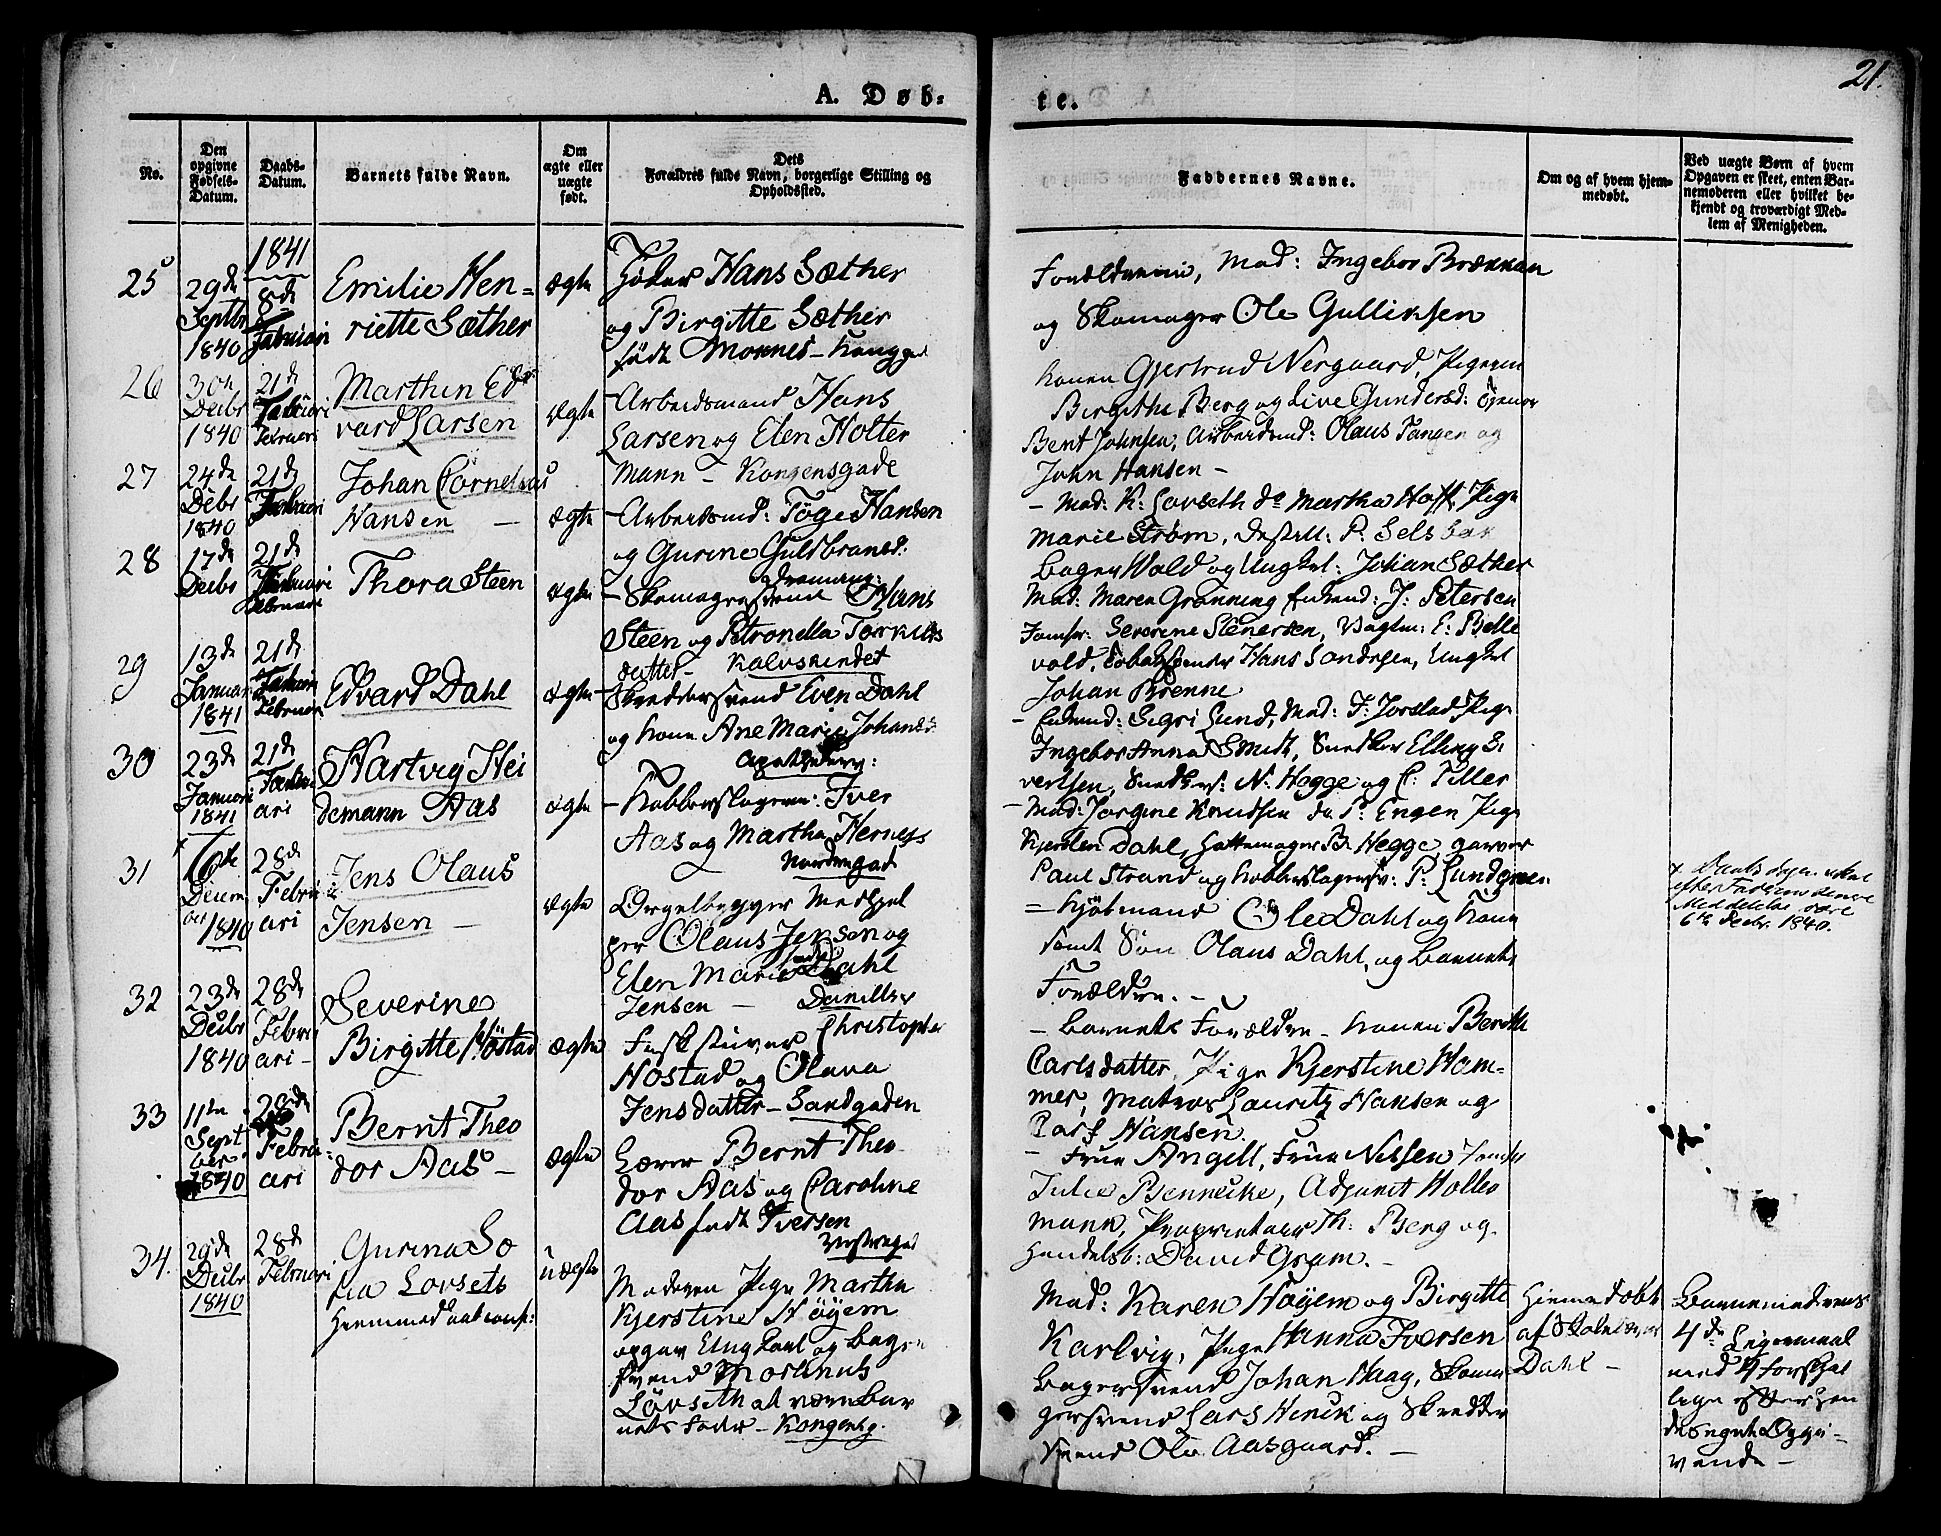 A. Døb-
te.
21.
No.
Den opgivne Fødsels-Datum.
Daabs-Datum.
Barnets fulde Navn.
Om ægte eller uægte født.
Dets Forældres fulde Navn, borgerlige Stilling og Opholdssted.
Faddernes Navne.
Om og af hvem hjem-medøbt.
Ved uægte Børn af hvem
Opgaven er skeet, enten Bar-
nemoderen eller hvilket be-
kjendt og troværdigt Med-
lem af Menigheden.
1841
25
29de
Septbr
1840
8de
Februari
Emilie Hen-
riette Sæther
ægte
Hans Sæther
og Birgitte Sæther
født
Forældrene, Mad: Ingebor Brækkan
og Skomager Ole Gulliksen
26
30te
Decbr
1840
21de
Februari
Marthin Ed-
vard Larsen
ægte
Arbeidsmand Hans
Larsen og Elen Holter
mann - Kongensgade
konen Gjertrud Nergaard, Pigerne
Birgithe Berg og Live Gundersd:
Bent Johnsen, Arbeidsmd: Olaus Tangen og
John Hansen -
27
24de
Decbr
1840
21de
Johan Cornelius
Hansen -
ægte
Arbeidsmd: Töge Hansen
og Gurine Guldbrandsd:
- Mad: K: Lovseth do Martha Hoff, Pige
Marie Strøm, P. Selsbak
Bager Wold og Ungkl: Johan Sæther
28
17de
Decbr
21de
Februari
Thora Steen
ægte
- Skomagersvend Hans
Steen og Petronella Torkils
datter - Kalvskindet
Mad: Maren Grønning J: Petersen
Jomfr: Severine Stenersen, E: Belle
vold, Hans Sandersen, Ungkl
Johan Brenne
29
13de
Januar
1841
21de
Februar
Edvard Dahl
ægte
- Skreddersvend Even Dahl
og kone Ane Marie Johansd:
Sigri Lund, Mad: F: Jorstad, Pige
Ingebor Anna Smidt, Snedker Elling Si
vertsen, N: Hegge og C: Tiller
30
23de
Januari
1841
21de
ari
Hartvig Hei
demann Aas
ægte
- Kobberslagersv: Iver
Aas og Martha Herness
- Mad: Jørgine Knudsen do P: Engen Pige
Kjersten Dahl, Hattemager B. Hegge garver
Paul Strand og Kobberslagersv: P: Lundgren
31
6te
Decem
ber
1840
28de
Februari
Jens Olaus
Jensen -
ægte
Orgelbygger
Olaus Jensen og
Elen Marie født Dahl
Jensen -
= Kjøbmand Ole Dahl og kone
samt Søn Olaus Dahl, og Barnets
Forældre. -
efter Faderens senere
Meddelelse være
6te Decbr. 1840.
32
23de
Decbr
1840
28de
Februari -
Severine
Birgitte Høstad
ægte
Christopher
Høstad og Olava
Jensdatter - Sandgaden
- Barnets Forældre - konen Berith
Carlsdatter, Pige Kjerstine Ham-
mer, Matros Lauritz Hansen og
Carl Hansen.
33
11te
Septbr
1840
28de
Februari
Bernt Theo
dor Aas -
ægte
Lærer Bernt Theo
dor Aas og Caroline
Aas født Iversen
- Frue Angell, Frue Nelsen Jomfr
Julie Bennecke, Adjunkt Holle
mann, Proprietair Th: Berg og
Handelsb: David Gram. -
34.
29de
Decbr
1840
28de
Februari
Gurina So
fia Lovseth
Hjemmedøbt conf:
uægte
Moderen Pige Martha
Kjerstine Høyem
opgav Ungkarl og Bager
svend Mortinus
Lövseth at være Bar
nets Fader - Kongensg.
Mad: Karen Høyem og Birgitte
Karlvig, Pige Hanna Iversen
Bagersvend Johan Haag, Skoma
gersvend Lars Henik og Skredder
svend Ole Aasgaard. -
Hjemmedøbt
af Skolelærer
Dahl -
Barnemoderens
4de Leiermaal
med 4 forskjel
lige efter hen
des egen Opgi-
vende -